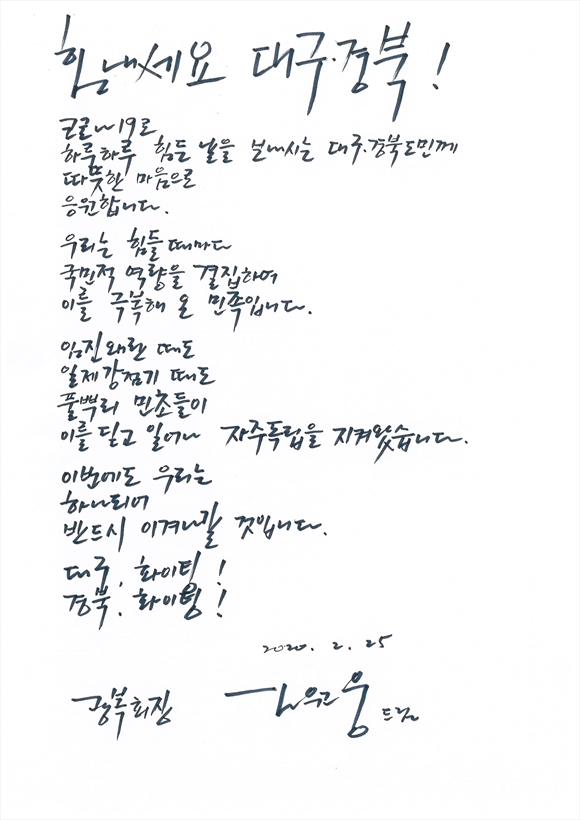 힘내세요 대구·경북!
코로나19로
하루하루 힘든 날을 보내시는 대구·경북도민께
따뜻한 마음으로
응원합니다.
우리는 힘들때마다
국민적 역량을 결집하여
이를 극복해 온 민족입니다.
임진왜란 때도
일제강점기 때도
풀뿌리 민초들이
이를 딛고 일어나 자주독립을 지켜왔습니다.
이번에도 우리는
하나되어
반드시 이겨나갈 것입니다.
대구, 화이팅!
경북, 화이팅!
2020. 2. 25
광복회장 김원웅 드림